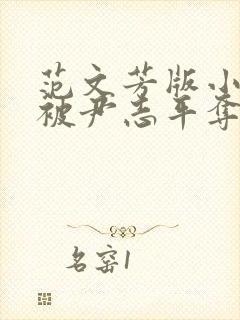 范文芳版小
被尹志平夺
名窑1